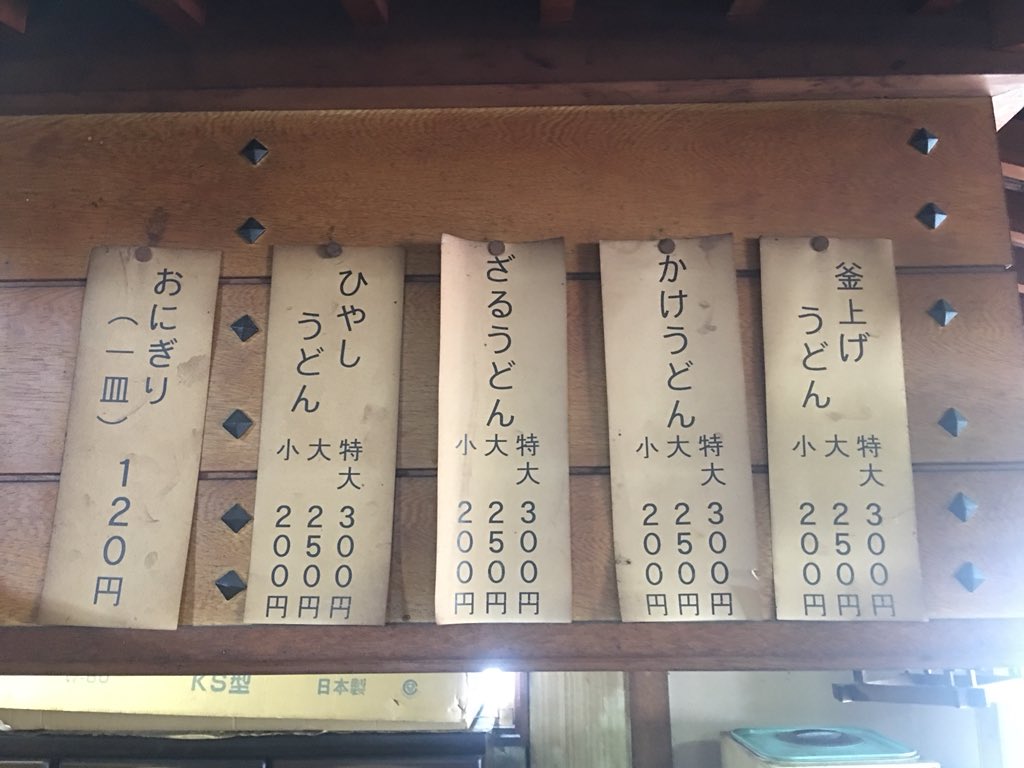 釜上げ
うどん
特大 300円
大 250円
小 200円
かけうどん
特大 300円
大 250円
小 200円
ざるうどん
特大 300円
大 250円
小 200円
ひやし
うどん
特大 300円
大 250円
小 200円
おにぎり
(一皿) 120円
KS型 日本製